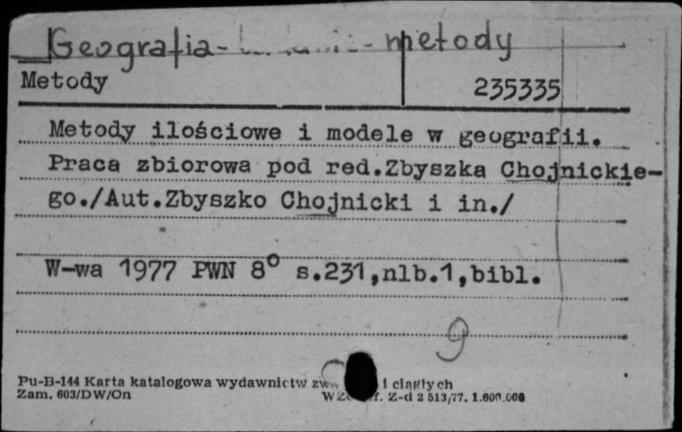 Geografia - metody
Metody 235335
Metody ilościowe i modele w geografii.
Praca zbiorowa pod red.Zbyszka Chojnickie-
go./Aut.Zbyszko Chojnicki i in./
W-wa 1977 PWN 8° s.231,nlb.1,bibl.
9
Pu-B-144 Karta katalogowa wydawnictw i ciągłych
Zam. 603/DW/On Z-d 2 513/77. 1.600.000